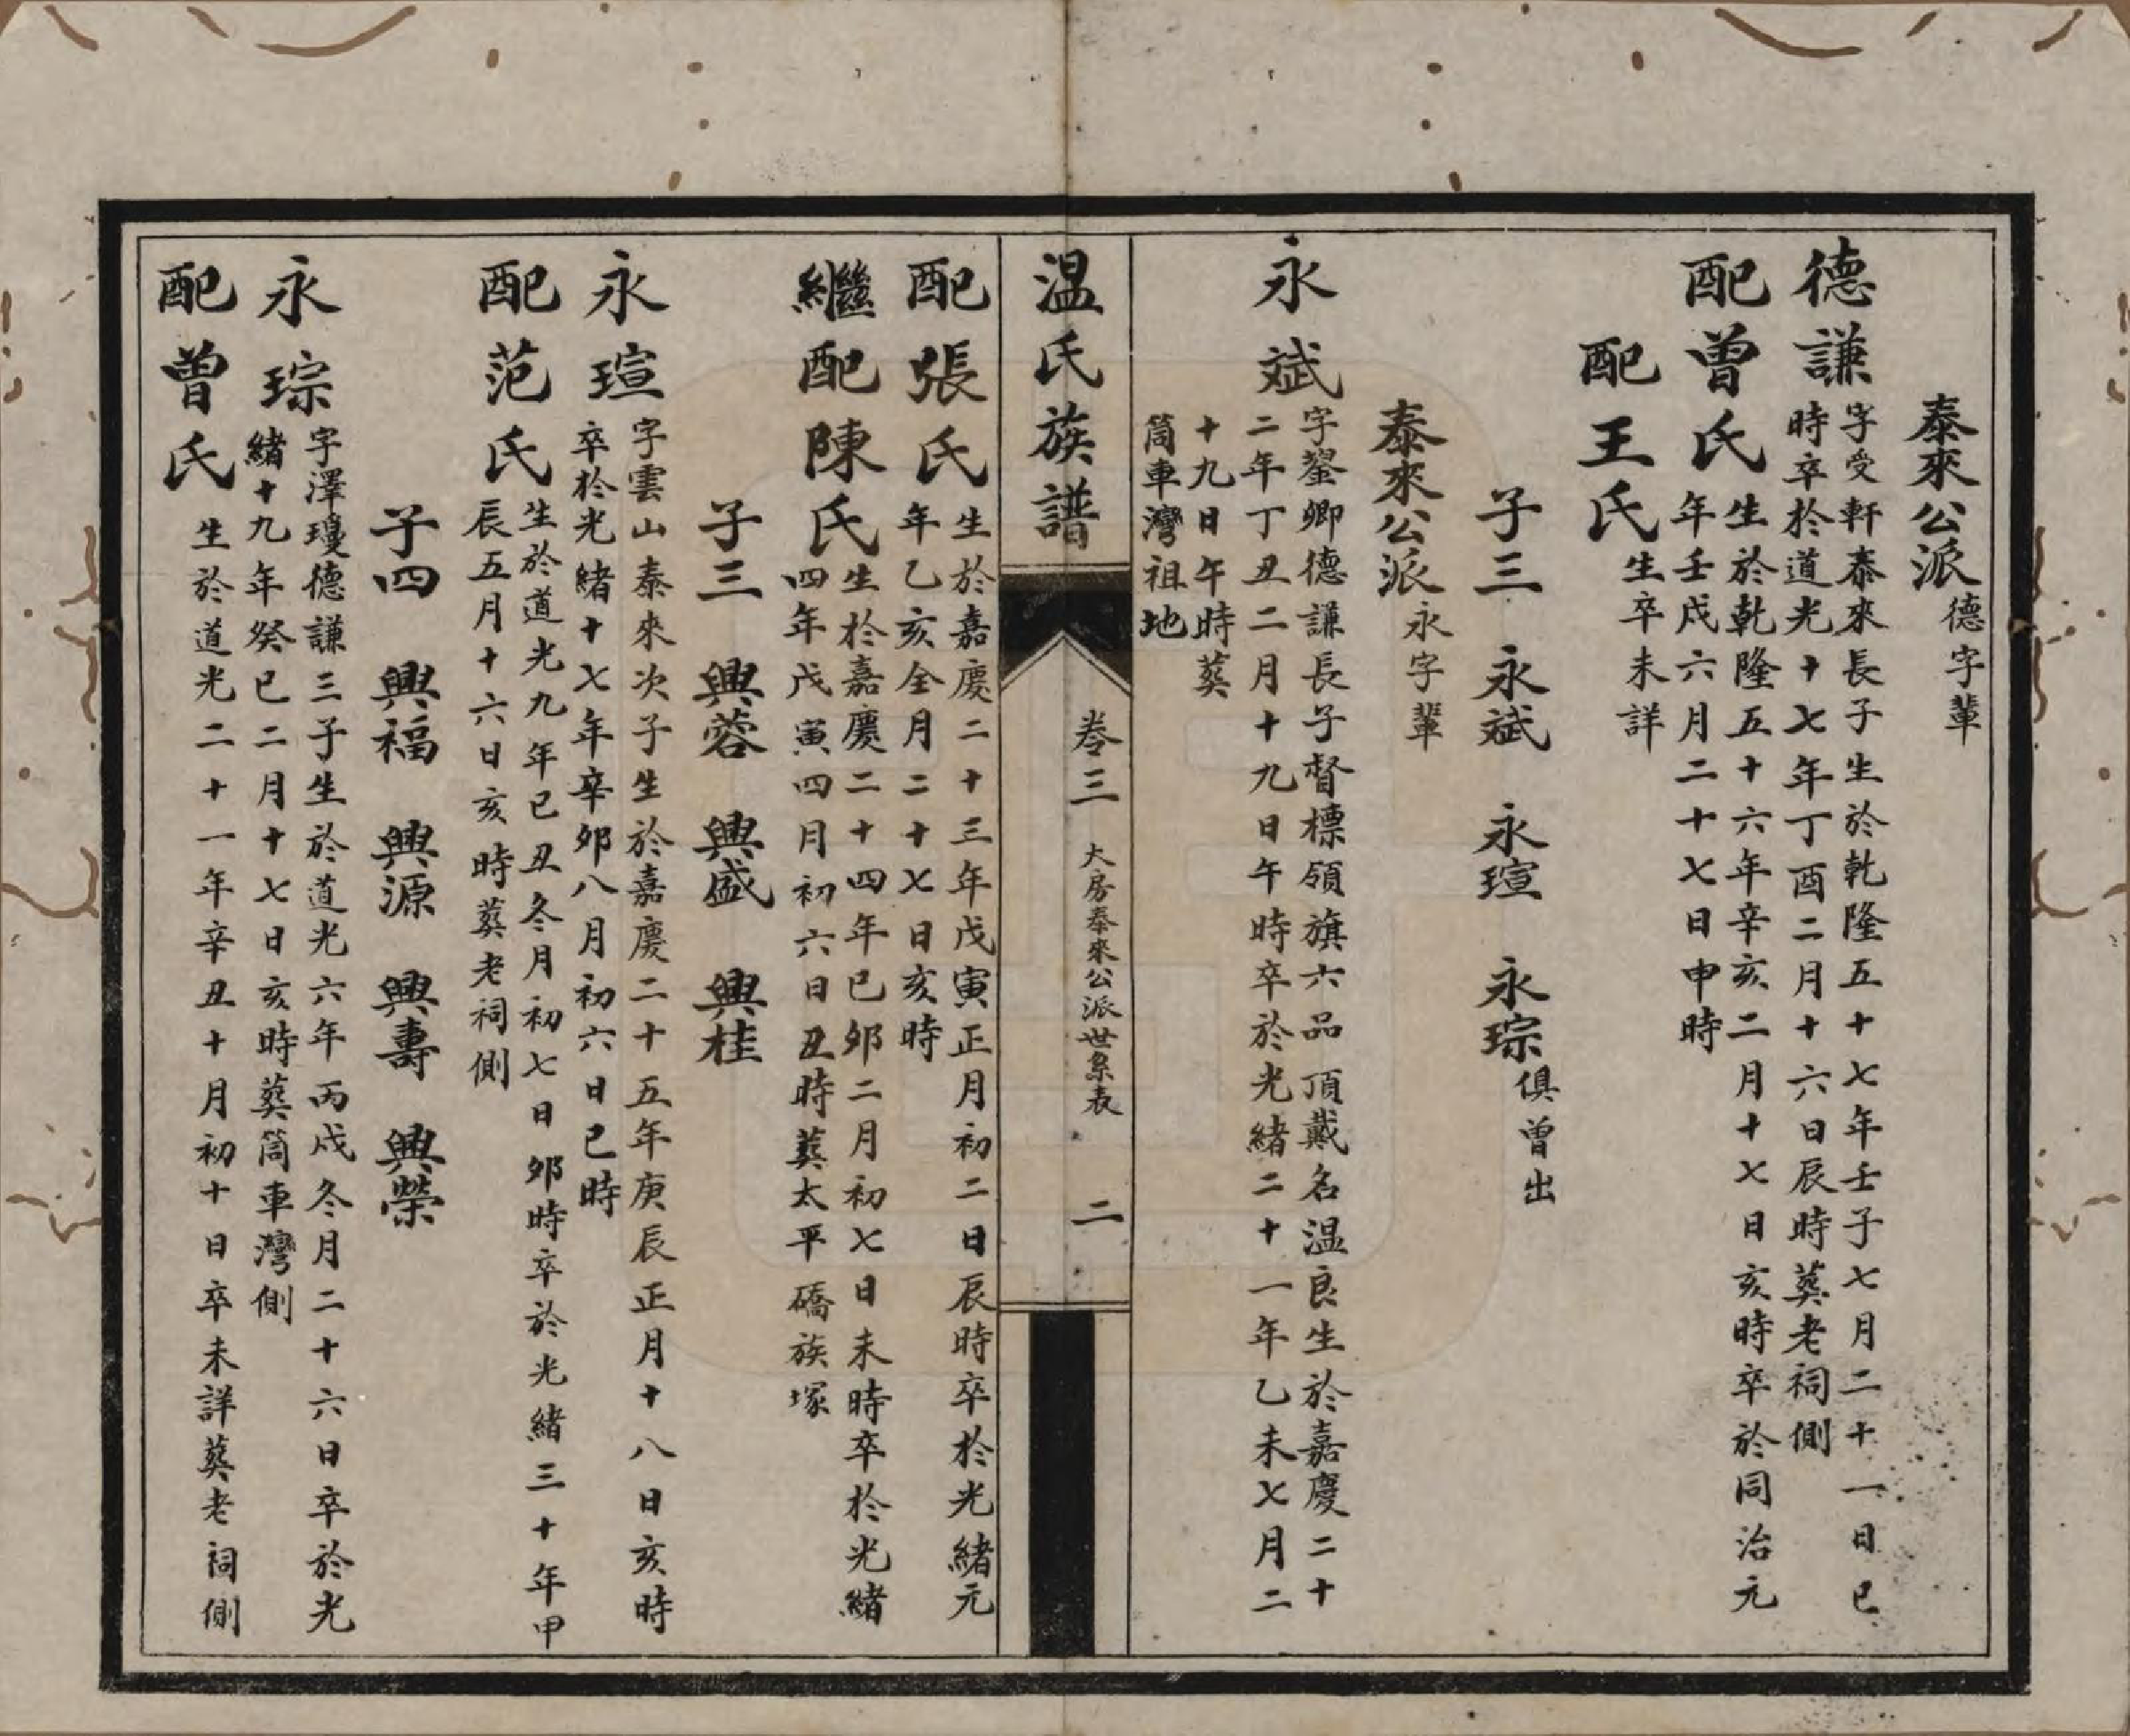 泰來公派德字輩
德謙字受軒泰來長子生於乾隆五十七年壬子七月二十一日巳
時卒於道光十七年丁酉二月十六日辰時葬老祠側
配曾氏生於乾隆五十六年辛亥二月十七日亥時卒於同治元
年壬戌六月二十七日申時
配王氏生卒未詳
子三　永斌　永瑄　永琮俱曾出
泰來公派永字輩
永斌字鋆卿德謙長子督標領旗六品頂戴名温良生於嘉慶二十
二年丁丑二月十九日午時卒於光緒二十一年乙未七月二
十九日午時葬
筒車灣祖地
温氏族譜　卷三　大房泰來公派世系表　二
配張氏生於嘉慶二十三年戊寅正月初二日辰時卒於光緒元
年乙亥全月二十七日亥時
繼配陳氏生於嘉慶二十四年己卯二月初七日未時卒於光緒
四年戊寅四月初六日丑時葬太平礄族塚
子三　興蓉　興盛　興桂
永瑄字雲山泰來次子生於嘉慶二十五年庚辰正月十八日亥時
卒於光緒十七年辛卯八月初六日巳時
配范氏生於道光九年己丑冬月初七日卯時卒於光緒三十年甲
辰五月十六日亥時葬老祠側
子四　興福　興源　興壽　興榮
永琮字澤瓊德謙三子生於道光六年丙戌冬月二十六日卒於光
緒十九年癸巳二月十七日亥時葬筒車灣側
配曾氏生於道光二十一年辛丑十月初十日卒未詳葬老祠側